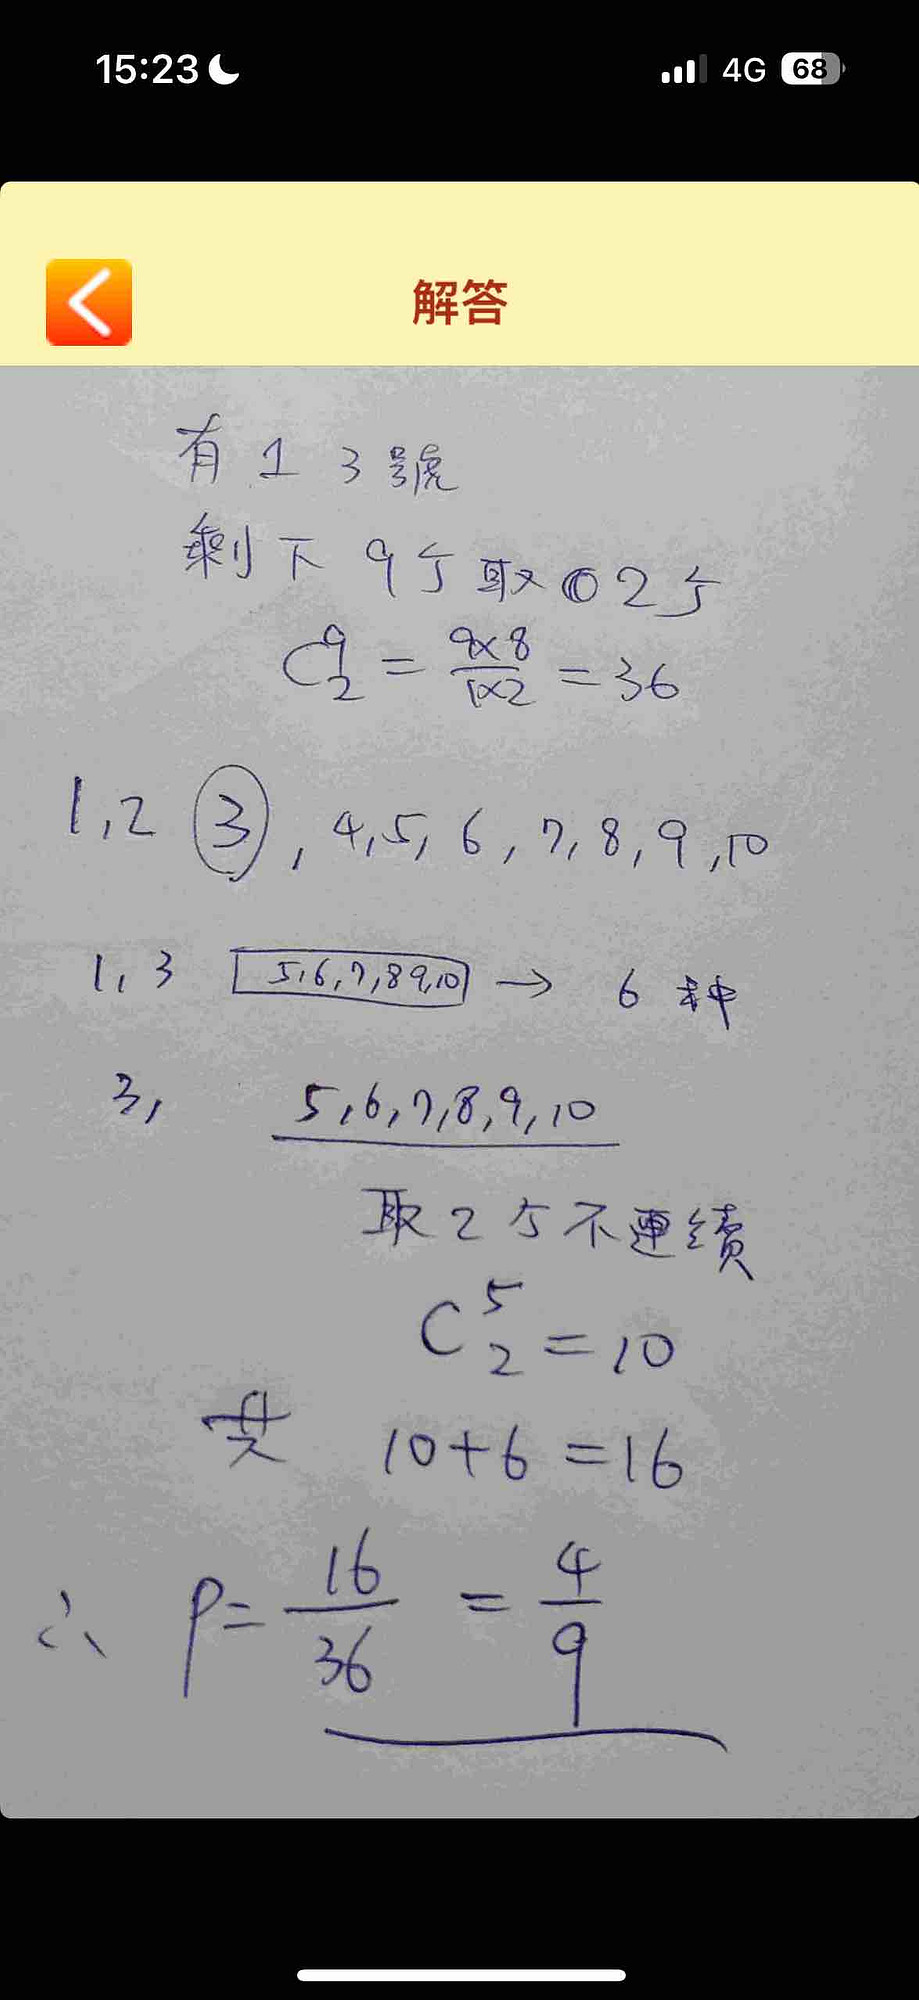 15:23 4G 68
解答
有 1 3 號
剩下 9个取 2个
C⁹₂ = 9×8/1×2 = 36
1,2 ③, 4,5, 6, 7, 8, 9, 10
1, 3 5,6,7,8 9,10 → 6 种
3, 5,6,7,8,9,10
取 2 个不連續
C⁵₂ = 10
共 10+6 = 16
∴ P = 16/36 = 4/9